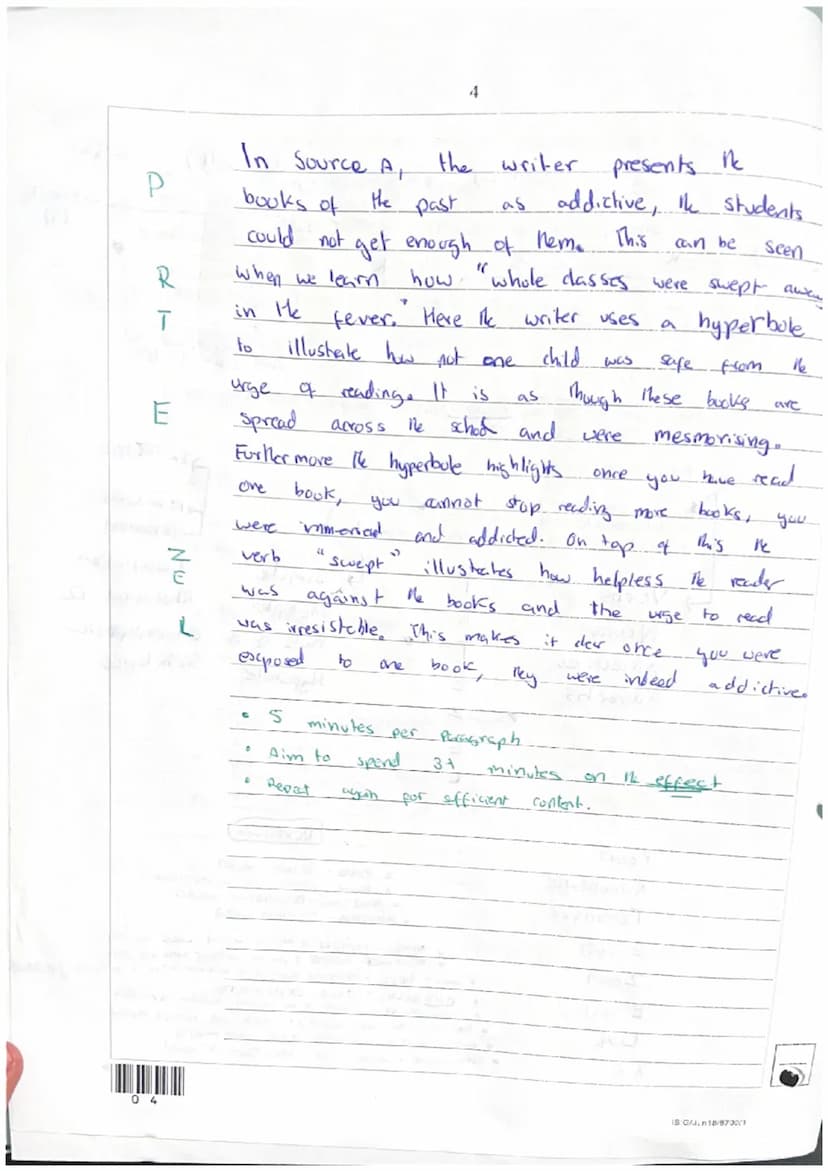 4
In Source A, the writer presents the
P
books of the past as addictive, the students
could not get enough of them. This can be seen
R
when we learn how "whole classes were swept away
T
in the fever." Here the writer uses a hyperbole
to illustrate how not one child was safe from the
urge of reading. It is as though these books are
E
spread across the school and were mesmorising.
Furthermore the hyperbole highlights once you have read
one book, you cannot stop reading more books, you
were immersed and addicted. On top of this the
Z
E
verb "swept" illustrates how helpless the reader
was against the books and the urge to read
L
was irresistible. This makes it clear once you were
exposed to one book, they were indeed addictive.
• 5 minutes per Paragraph
• Aim to spend 3+ minutes on the effect
• Repeat again for efficient content.
0 4